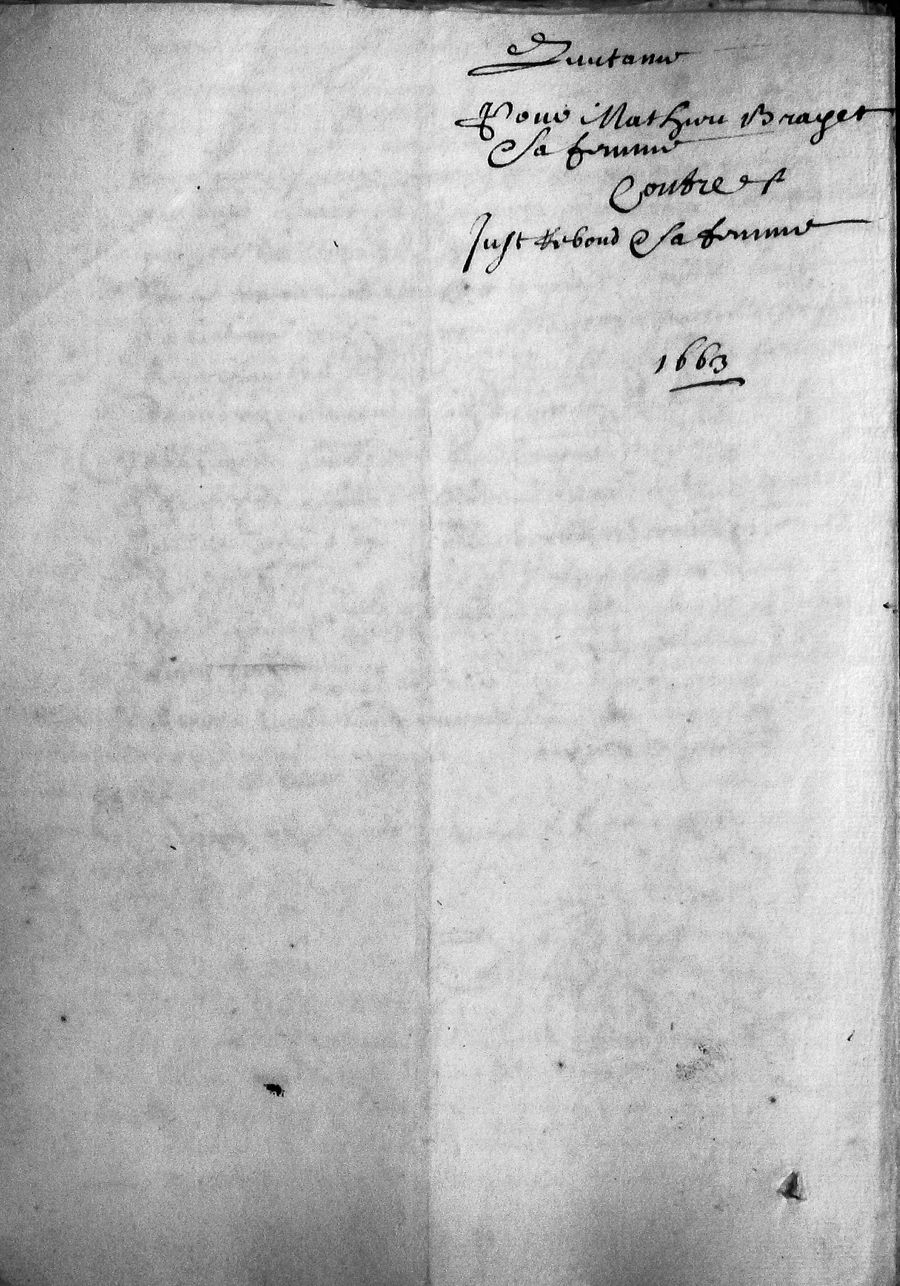 Quictance
Pour Mathieu Brayet
& sa femme
Contre et
Just Rebond & sa femme
1663